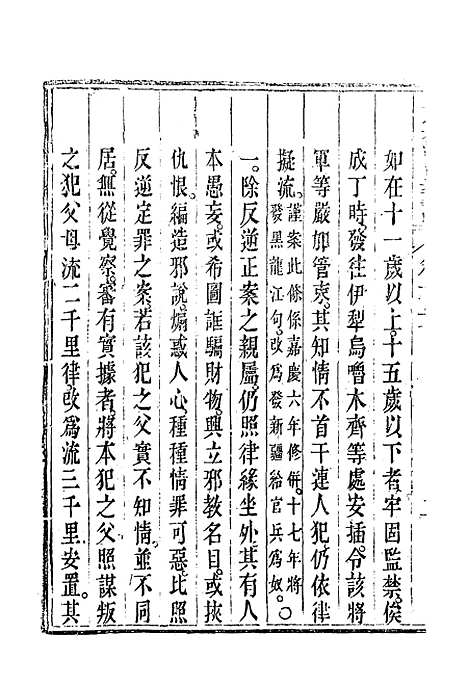 如在十一歲以上。十五歲以下者。牢固監禁。俟
成丁時。發往伊犁烏嚕木齊等處安插。令該將
軍等嚴加管束。其知情不首干連人犯。仍依律
擬流。謹案此條係嘉慶六年修併。十七年將
發黑龍江句。改為發新疆給官兵為奴。○
一。除反逆正案之親屬。仍照律緣坐外。其有人
本愚妄。或希圖誆騙財物。興立邪教名目。或挾
仇恨。編造邪說。煽惑人心。種種情罪可惡。比照
反逆定罪之案。若該犯之父實不知情。並不同
居。無從覺察。審有實據者。將本犯之父照謀叛
之犯父母流二千里律。改為流三千里安置。其